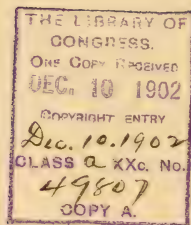 THE LIBRARY OF
CONGRESS.
ONE COPY RECEIVED
DEC. 10 1902
COPYRIGHT ENTRY
Dec. 10. 1902
CLASS a XXc. No.
49807
COPY A.